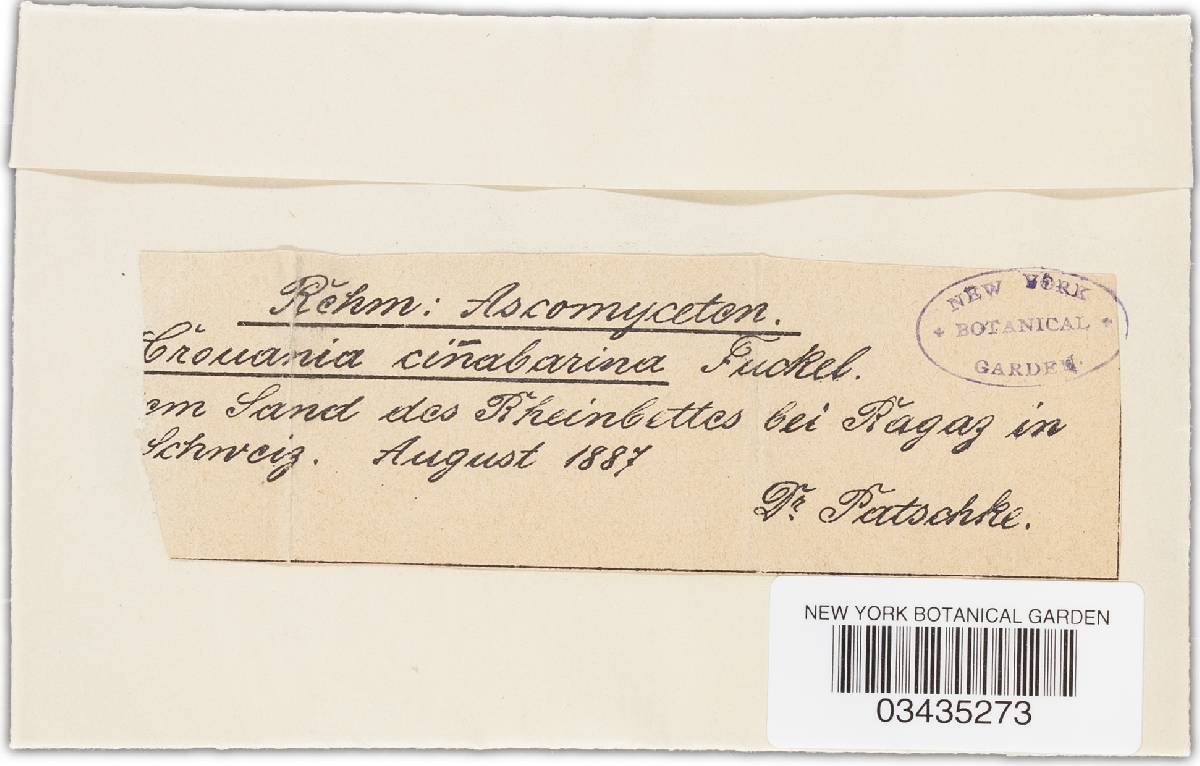 Rehm: Ascomyceten.
Crouania cin̄abarina Fuckel.
em Sand des Rheinbettes bei Ragaz in
Schweiz. August 1887
Dr. Patschke.
NEW YORK
BOTANICAL
GARDEN.
NEW YORK BOTANICAL GARDEN
03435273